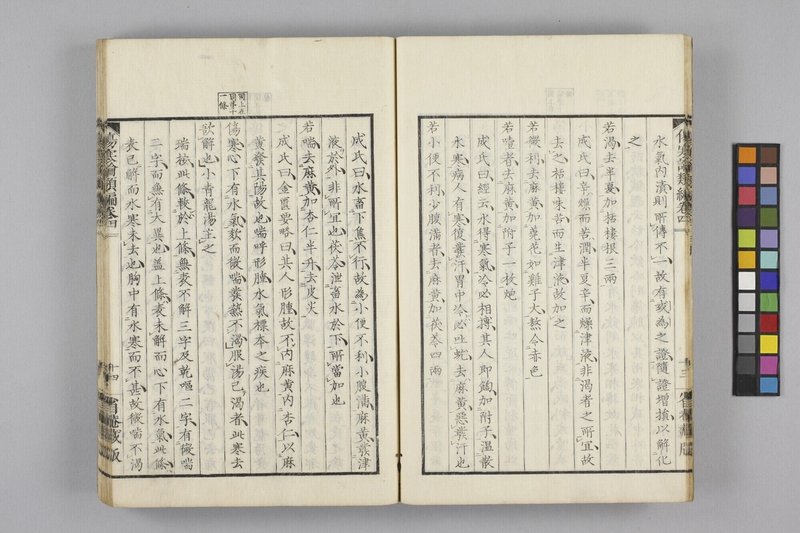 水氣內漬則所傳不一故有或為之證隨證增損以解化
之
若渴去半夏加栝樓根三兩
成氏曰辛燥而苦潤半夏辛而燥津液非渴者之所宜故
去之栝樓味苦而生津液故加之
若微利去麻黃加蕘花如雞子大熬令赤色
若噎者去麻黃加附子一枚炮
成氏曰經云水得寒氣冷必相搏其人即䭇加附子溫散
水寒病人有寒復發汗胃中冷必吐蚘去麻黃惡發汗也
若小便不利少腹滿者去麻黃加茯苓四兩
傷寒論類編卷四
十三
省菴藏版
成氏曰水畜下焦不行故為小便不利小腹滿麻黃發津
液於外非所宜也茯苓泄畜水於下所當加也
若喘去麻黃加杏仁半升去皮尖
成氏曰金匱要略曰其人形腫故不內麻黃內杏仁以麻
黃發其陽故也喘呼形腫水氣標本之疾也
傷寒心下有水氣欬而微喘發熱不渴服湯已渴者此寒去
欲解也小青龍湯主之
喘按此條較於上條無表不解三字及乾嘔二字有微喘
二字而無有大異也蓋上條表未解而心下有水氣此條
表已解而水寒未去也胸中有水寒而不甚故微喘不渴
傷寒論類編卷四
十四
省菴藏版